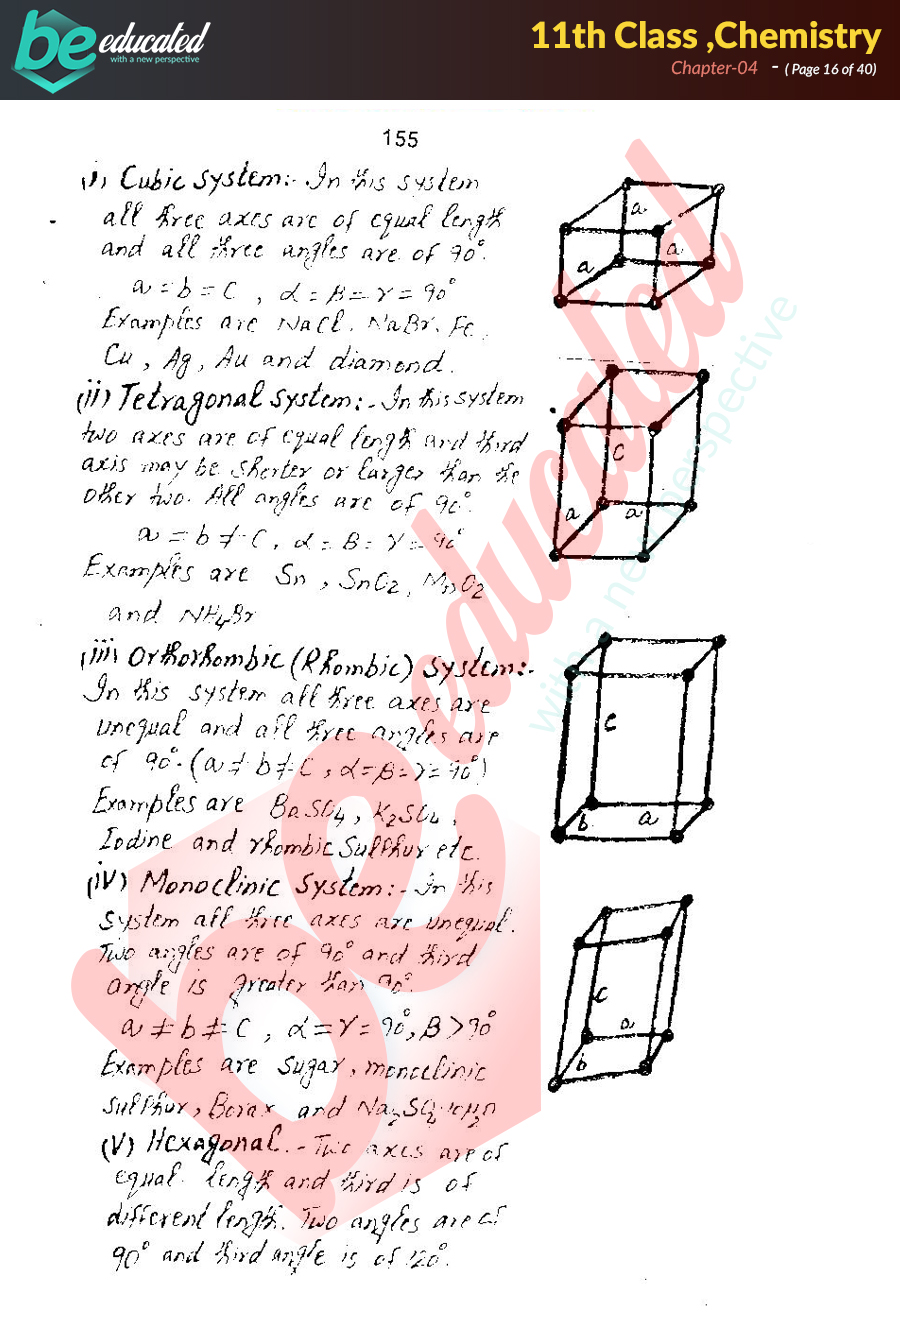 be educated
with a new perspective
11th Class ,Chemistry
Chapter-04 - ( Page 16 of 40)
155
(i) Cubic system:- In this system
all three axes are of equal length
and all three angles are of 90°.
a = b = c , α = β = γ = 90°
Examples are NaCl, NaBr, Fe,
Cu, Ag, Au and diamond.
a
a
a
(ii) Tetragonal system:- In this system
two axes are of equal length and third
axis may be shorter or larger than the
other two. All angles are of 90°.
a = b ≠ c, α = β = γ = 90°
Examples are Sn, SnO2, MnO2
and NH4Br
c
a
a
(iii) Orthorhombic (Rhombic) System:-
In this system all three axes are
unequal and all three angles are
of 90°. (a ≠ b ≠ c, α = β = γ = 90°)
Examples are BaSO4, K2SO4,
Iodine and rhombic Sulphur etc.
c
b
a
(iv) Monoclinic System:- In this
system all three axes are unequal.
Two angles are of 90° and third
angle is greater than 90°.
a ≠ b ≠ c, α = γ = 90°, β > 90°
Examples are sugar, monoclinic
sulphur, Borax and Na2SO4.10H2O
c
a
b
(V) Hexagonal.- Two axes are of
equal length and third is of
different length. Two angles are of
90° and third angle is of 120°.
be educated
with a new perspective